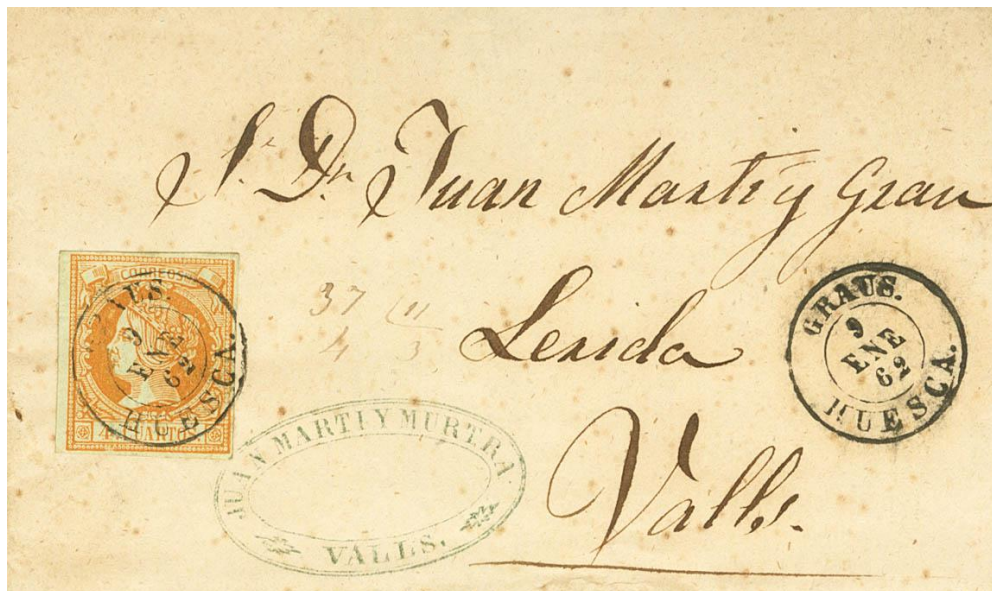 Sr. Dn. Juan Marti y Grau
Lerida
Valls.
CORREOS
4 CUARTOS
GRAUS.
9
ENE
62
HUESCA.
37 11
4 3
GRAUS.
9
ENE
62
HUESCA.
JUAN MARTI Y MURTRA
VALLS.